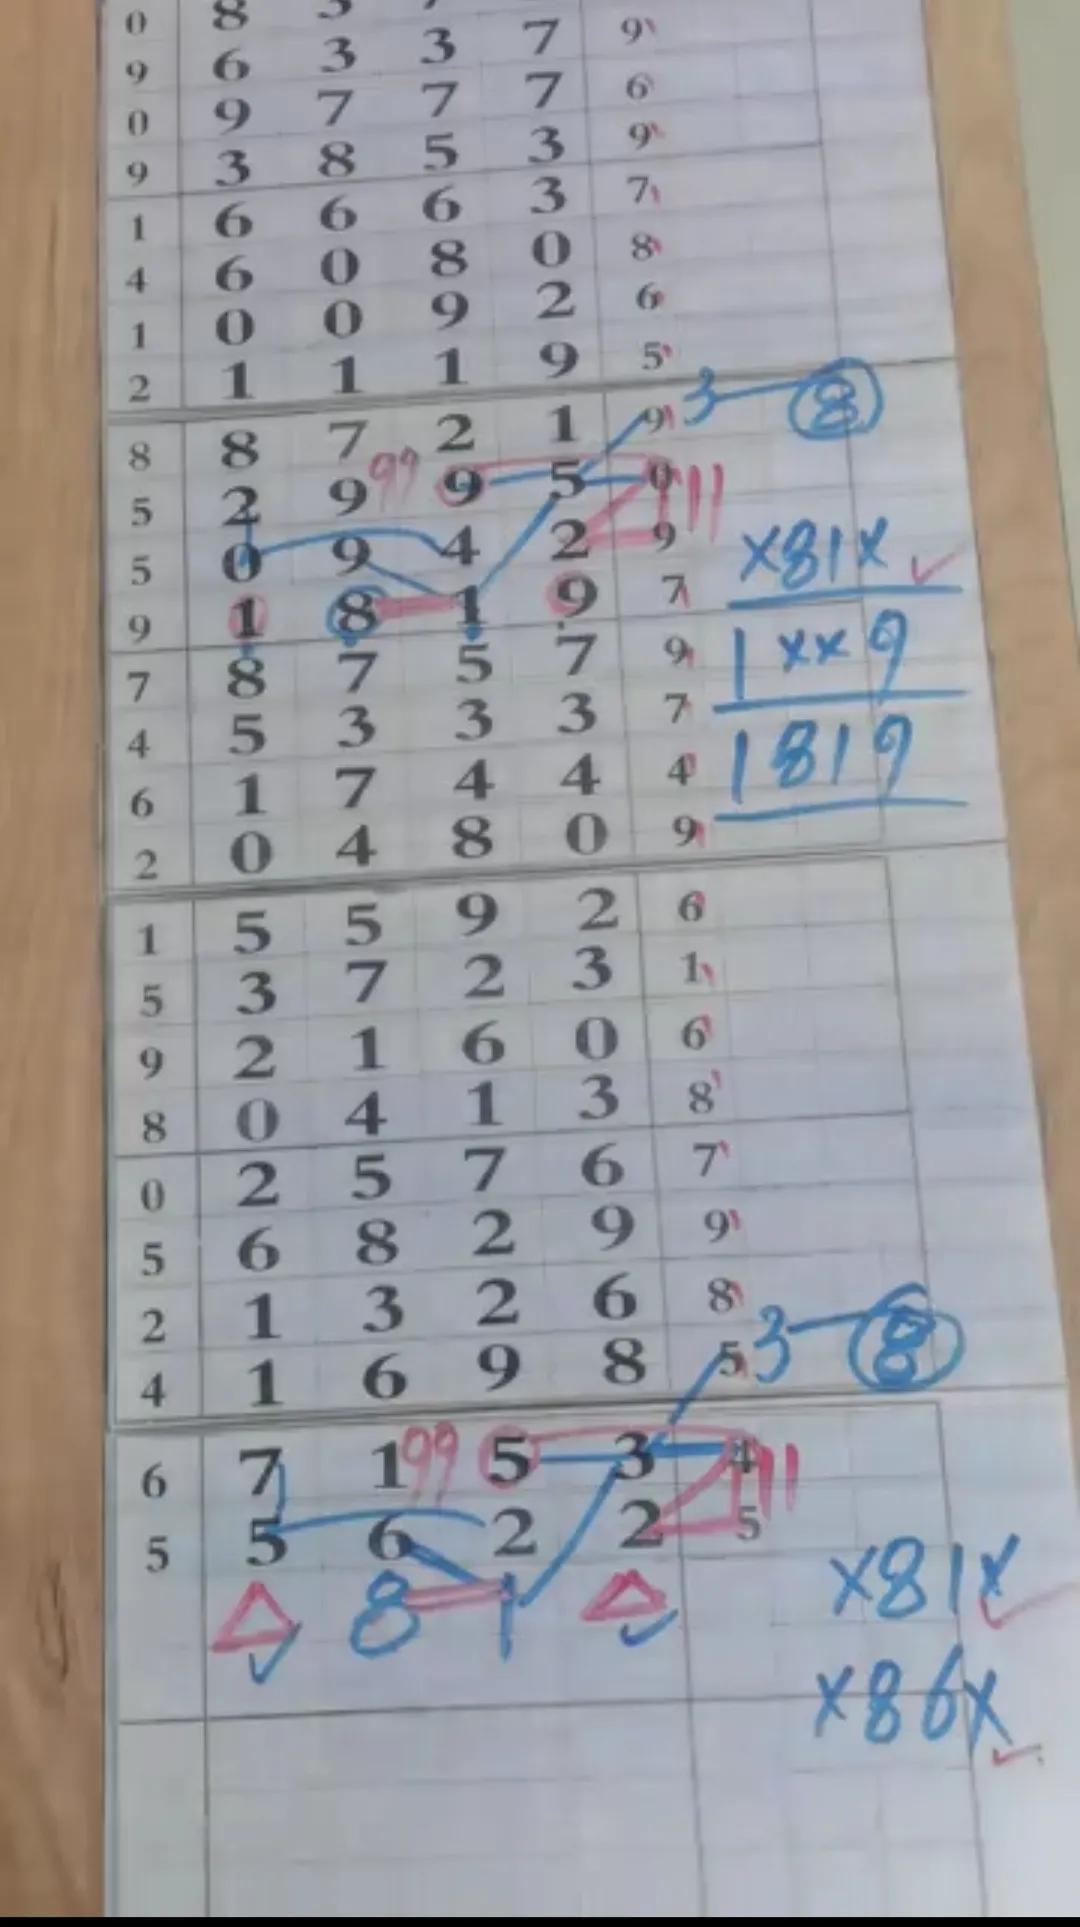 0 8 3
9 6 3 3 7 9
0 9 7 7 7 6
9 3 8 5 3 9
1 6 6 6 3 7
4 6 0 8 0 8
1 0 0 9 2 6
2 1 1 1 9 5
8 8 7 2 1 9 3 8
5 2 9 99 9 5 0 11
5 0 9 4 2 9 x81x
9 1 8 1 9 7
7 8 7 5 7 9 1xx9
4 5 3 3 3 7
6 1 7 4 4 4 1819
2 0 4 8 0 9
1 5 5 9 2 6
5 3 7 2 3 1
9 2 1 6 0 6
8 0 4 1 3 8
0 2 5 7 6 7
5 6 8 2 9 9
2 1 3 2 6 8
4 1 6 9 8 5 3 8
6 7 1 99 5 3 4 11
5 5 6 2 2 5
8 1 x81x
x86x